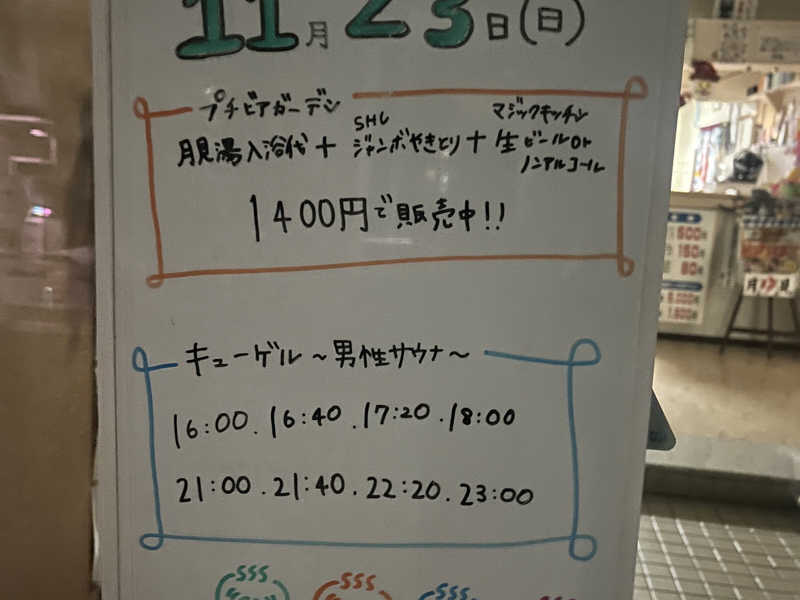 11月23日(日)
プチビアガーデン
月見湯入浴代+SHLジャンボやきとり+マジックキッチン生ビールorノンアルコール
1400円で販売中!!
キューゲル~男性サウナ~
16:00.16:40.17:20.18:00
21:00.21:40.22:20.23:00
SSS SSS SSS
500円
150円
80円
月ゆ見